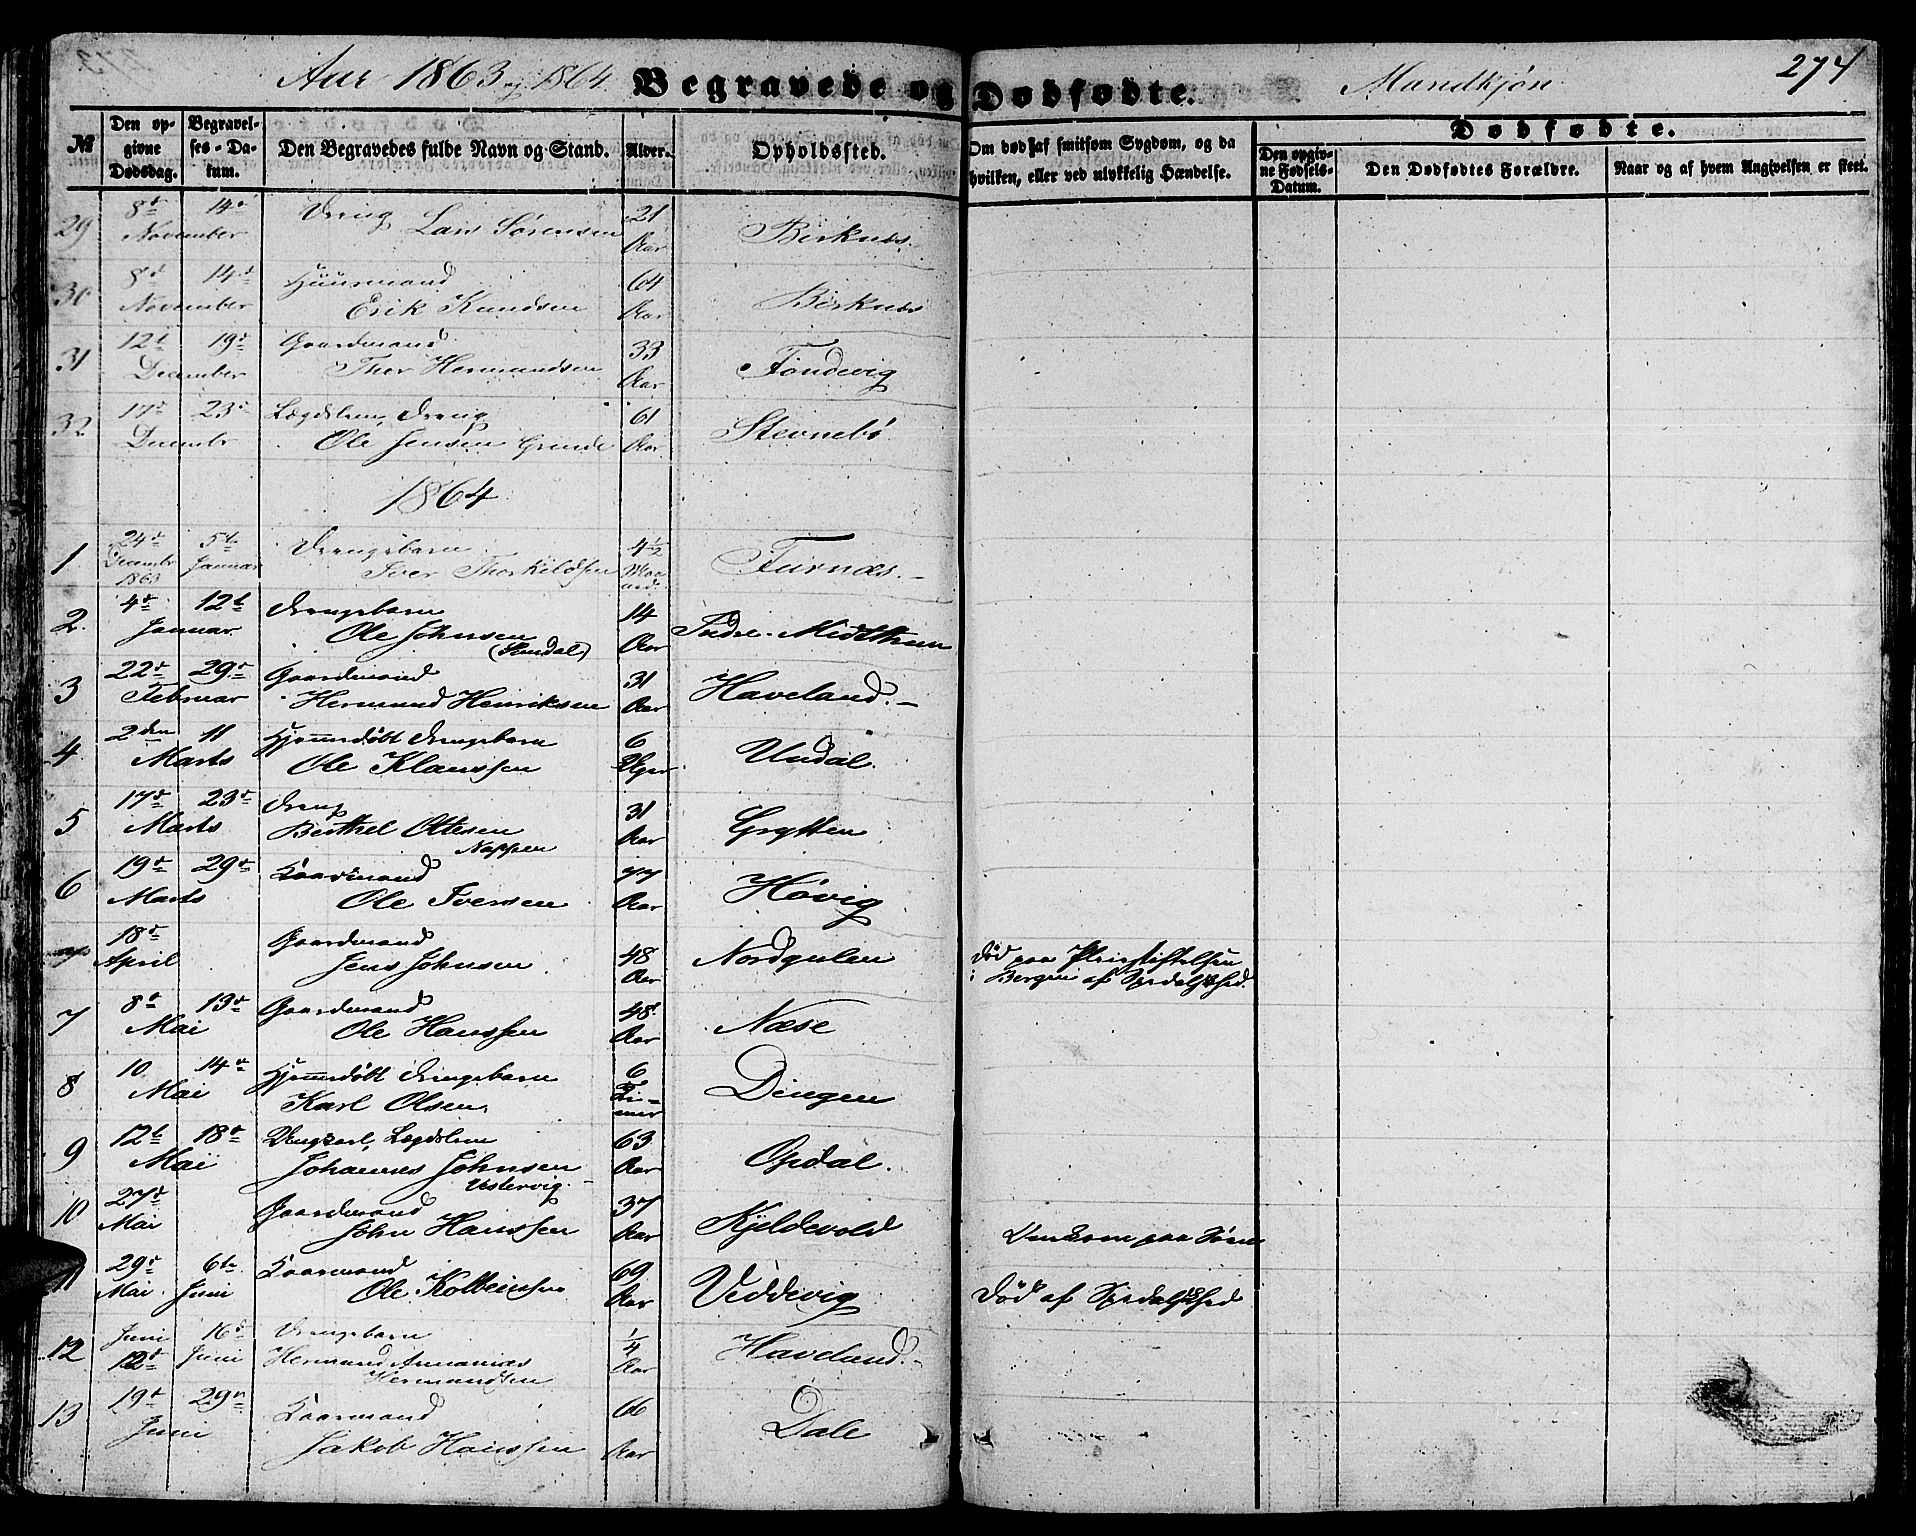 Aar 1863 og 1864. Begravede og Dødfødte. Mandkjøn 274
No Den opgivne Dødsdag. Begravelses-Datum. Den Begravedes fulde Navn og Stand. Alder. Opholdssted. Om død af smitsom Sygdom, og da hvilken, eller ved ulykkelig Hændelse. Dødfødte.
Den opgivne Fødsels-Datum. Den Dødfødtes Forældre. Naar og af hvem Angivelsen er skeet.
29 8de 14de Dreng 21
November Lars Sørensen Aar Birknæs.
30 8de 14de Huusmand 64
November Erik Knudsen Aar Birknæs
31 12te 19de Gaardmand 33
December Thor Hermundsen Aar Tøndevig
32 17de 23de Lægdslem, Dreng 61
Decembr Ole Jensen Grinde Aar Stevnebø
1864
1 24de 5te Drengebarn 4½
Decembr 1863 Januar Iver Thorkildsen Maaned Furnæs.
2. 4de 12te Drengebarn 14
Januar Ole Johnsen Aar Indre-Midtthun
3 22de 29de Gaardmand 31
Februar Hermund Henriksen Aar Haveland.
4. 2den 11 Hjemmedøbt Drengebarn 6
Marts Ole Klaussen Uger Undal.
5 17de 23de Dreng 31
Marts Berthel Ottesen Aar Grytten
Nappen
6 19de 29de Kaarmand 77
Marts Ole Iversen Aar Høvig
7 18de Gaardmand 48
April Jens Johnsen Aar Nordgulen Død paa Pleiestiftelsen
i Bergen af Spedalskhed.
7 8de 13de Gaardmand 48
Mai Ole Hanssen Aar Næse
8 10 14de Hjemmedøbt Drengebarn 6
Mai Karl Olsen Timer Dingen
9 12te 18de Ungkarl, Lægdslem 63
Mai Johannes Johnsen Aar Opdal.
Østervig
10 27de Gaardmand 37
Mai John Hanssen Aar Kjeldevold Omkom paa Søen
11 29de 6te Kaarmand 69
Mai. Juni Ole Kolbeinsen Aar Veddevig Død af Spedalskhed
12 Juni 16de Drengebarn ¼
12te Juni Hermund Annanias Aar Haveland.
Hermundsen
13 19de 29de Kaarmand 66
Juni Jakob Hanssen Aar Dale